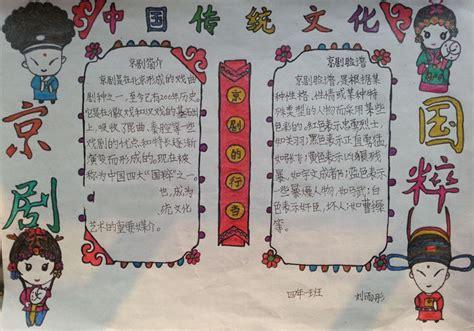 中国传统文化
京剧
国粹
京剧简介
京剧是在北京形成的戏曲
剧种之一,至今已有200年历史。
它是在徽戏和汉戏的基础
上,吸收了昆曲、秦腔等一些
戏剧的优点和特长逐渐
演变而成的。现在被
称为中国四大"国粹"之一。
也,成为
统文化
艺术的重要媒介。
京剧的行当
京剧脸谱
京剧脸谱,是根据某
种性格、性情或某种特
殊类型的人物而采用某些
色彩的。红色表示忠勇烈士,
如关羽;黑色表示正直勇猛,
如张飞;黄色表示
如宇文成都;蓝色
表示
色表示奸臣、坏人,如曹操
等。
四年一班
刘雨彤